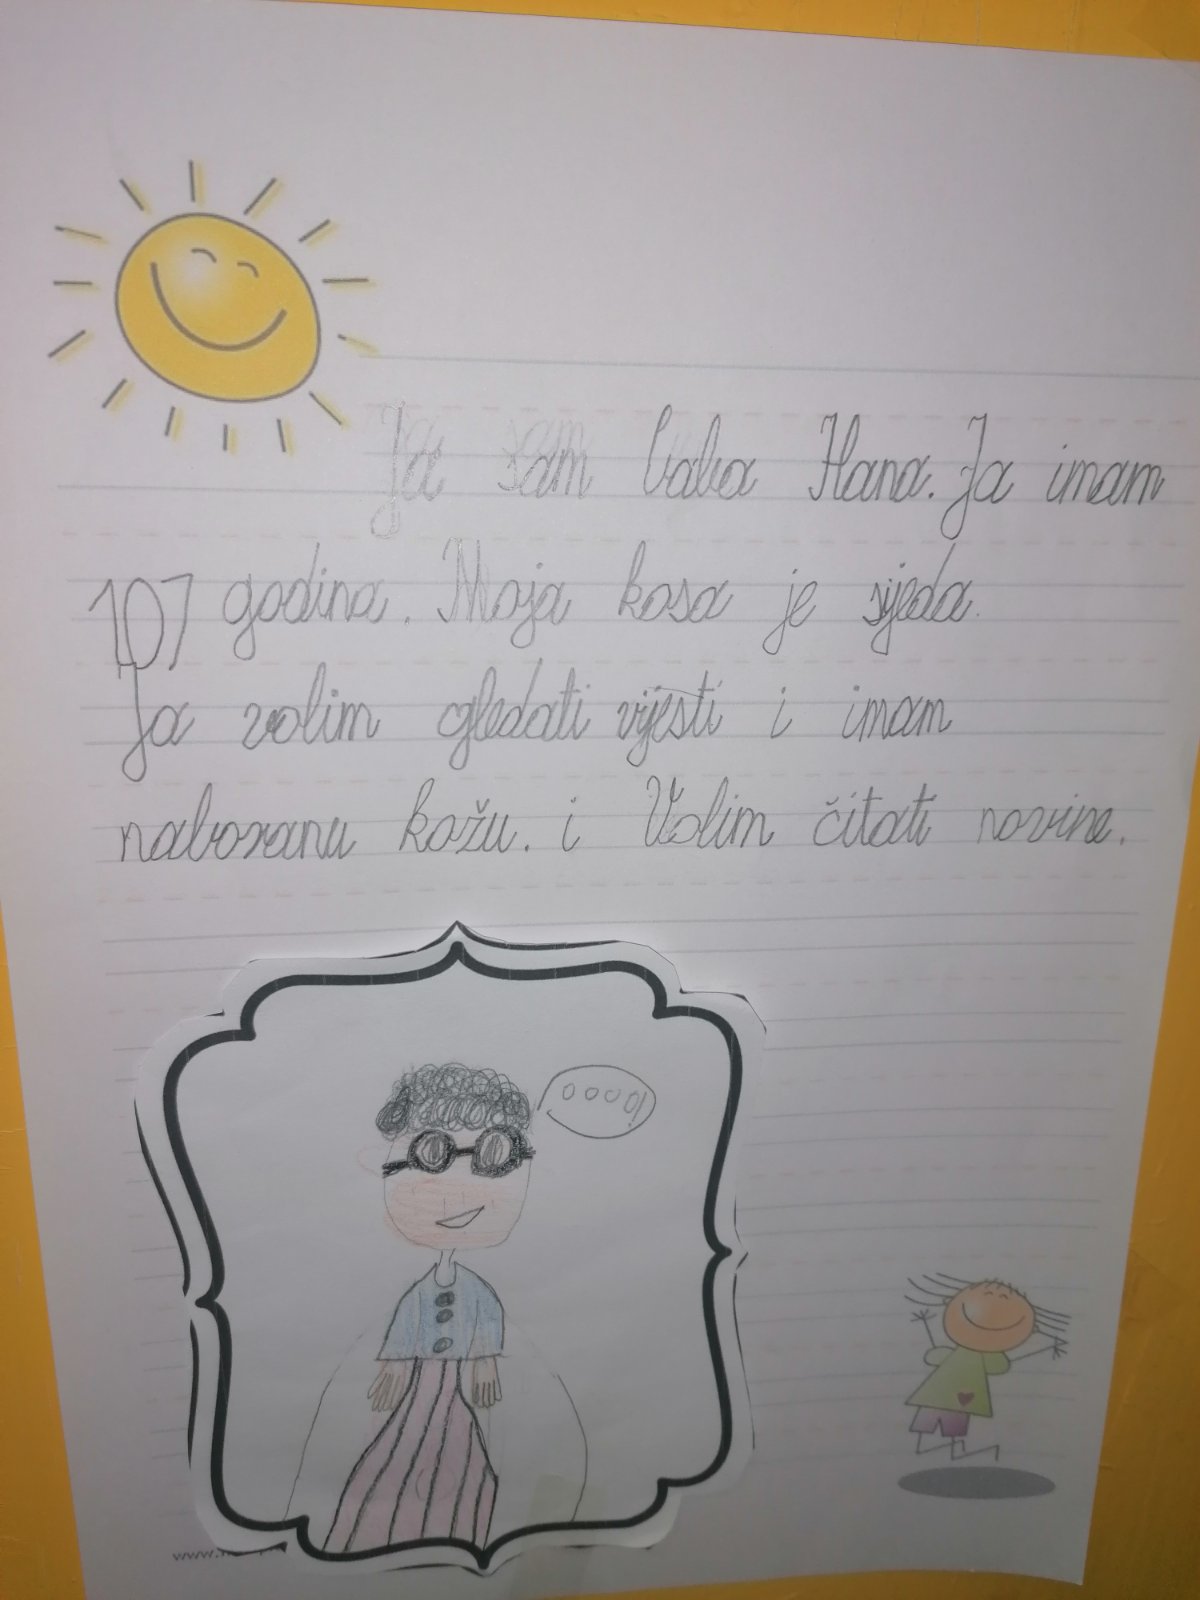 Ja sam baba Hana. Ja imam
107 godina. Moja kosa je sjeda.
Ja volim gledati vijesti i imam
naboranu kožu. i Volim čitati novine.
oooo!
www.